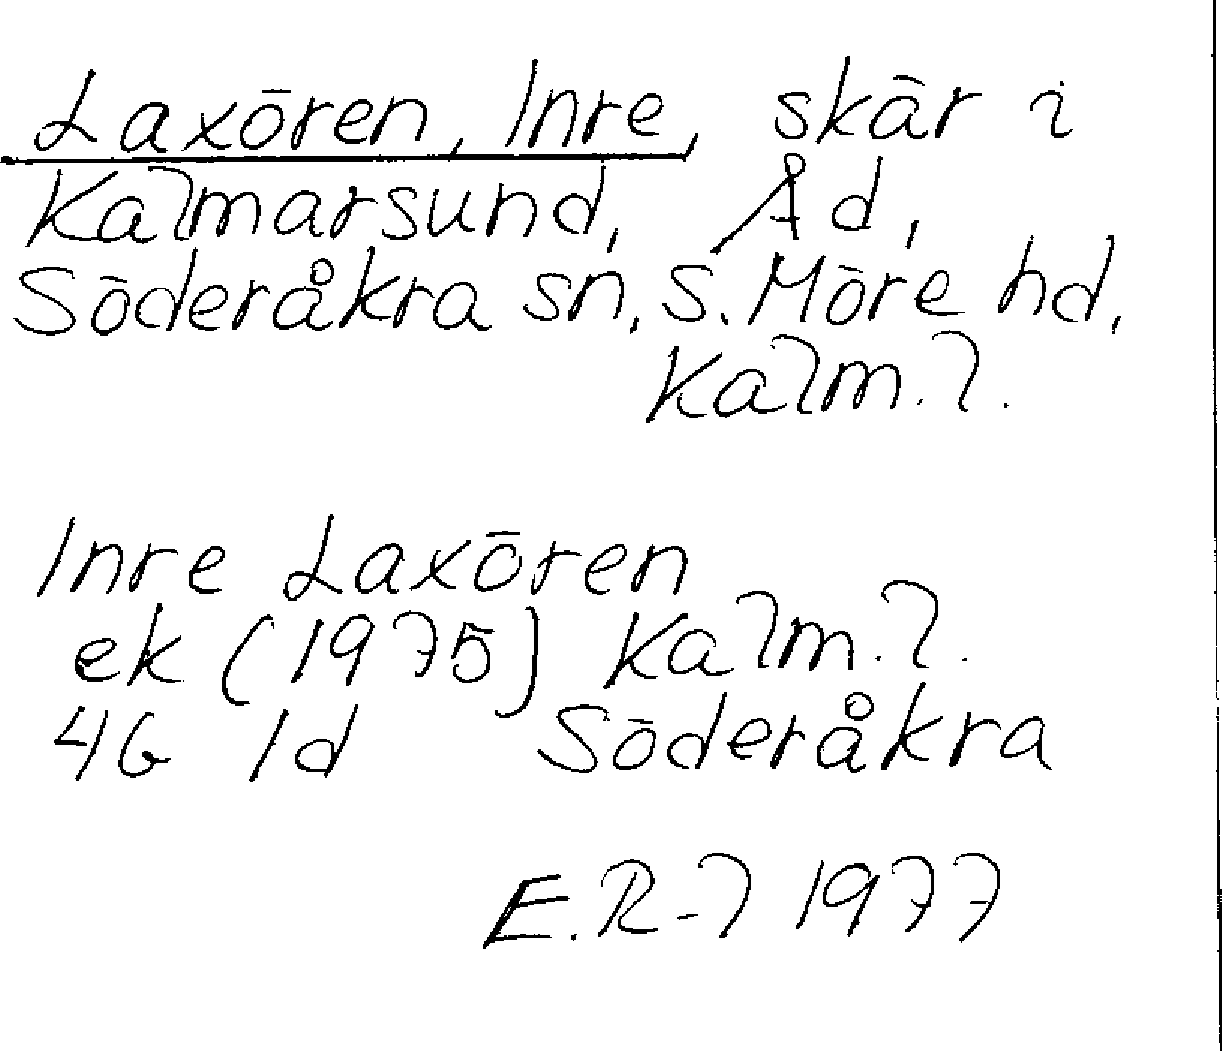 Laxören, Inre, skär i
Kalmarsund, Åd,
Söderåkra sn, S. Möre hd,
Kalm. l.
Inre Laxören
ek (1975) Kalm. l.
4G 1d Söderåkra
E. R-l 1977